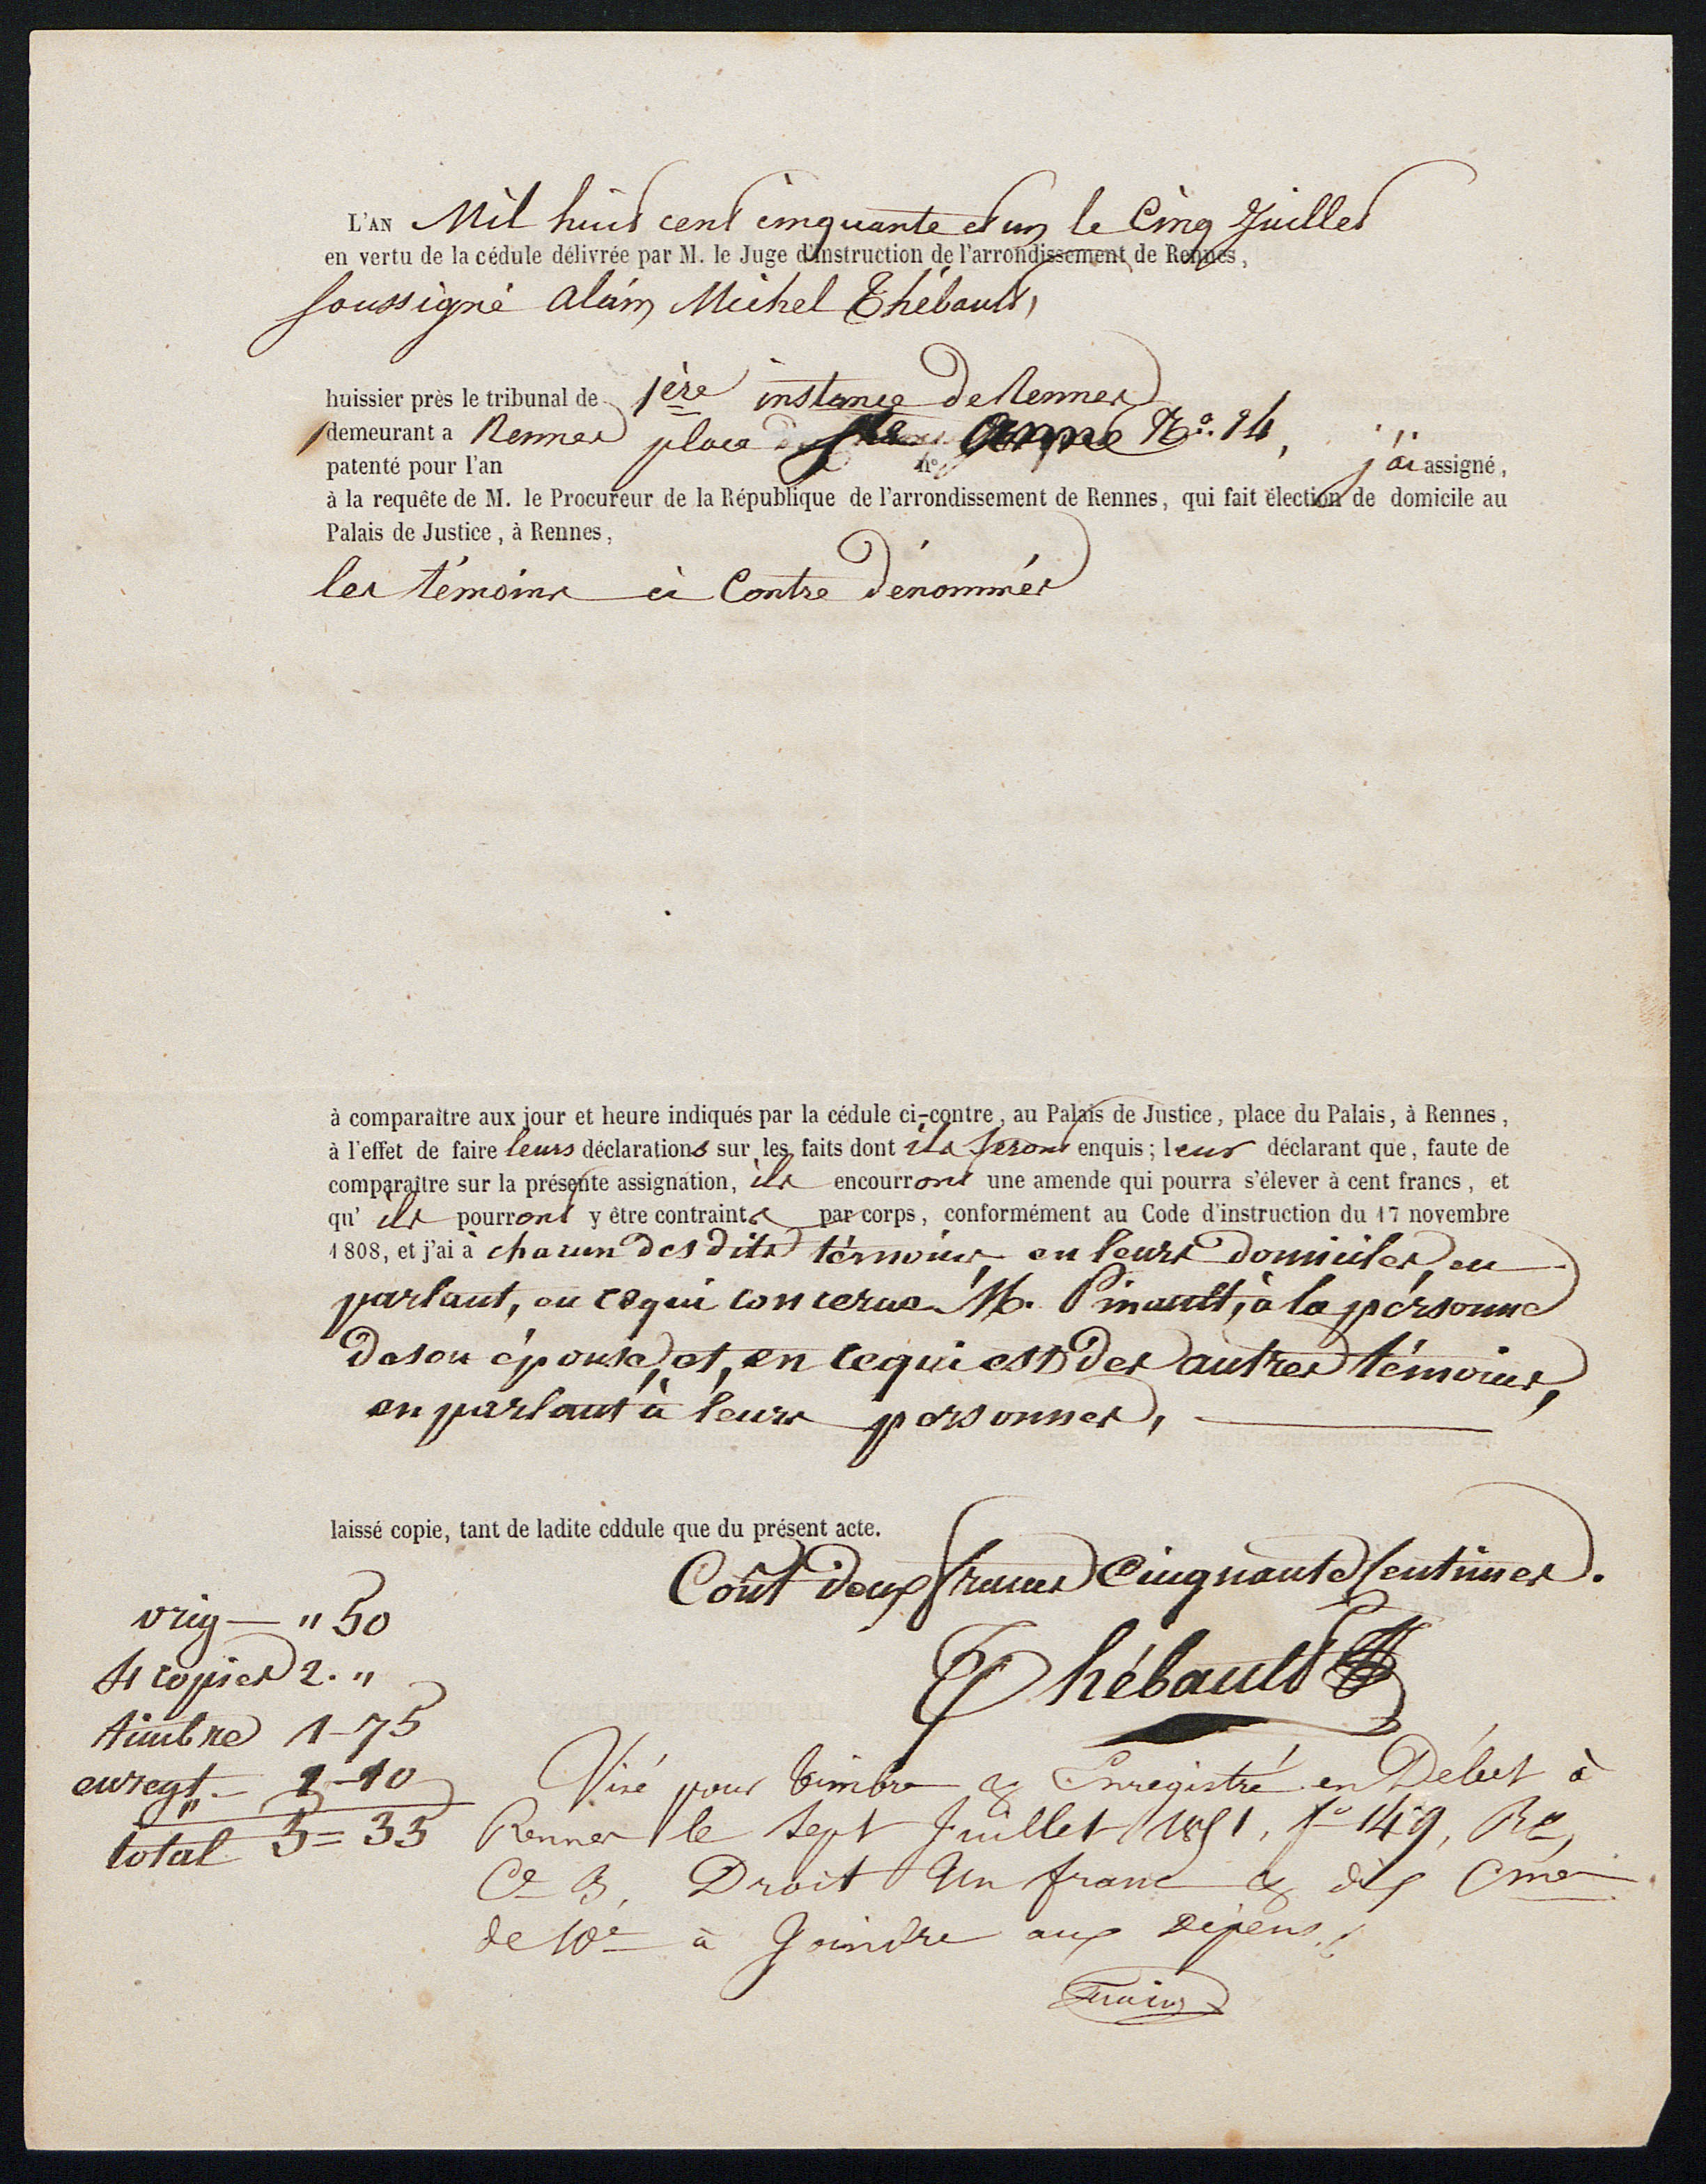 L'AN Mil huit cent cinquante et un le Cinq Juillet
en vertu de la cédule délivrée par M. le Juge d'Instruction de l'arrondissement de Rennes,
soussigné Alain Michel Thébault,
huissier près le tribunal de 1ère instance de Rennes
demeurant a Rennes place Ste Anne No. 14,
patenté pour l'an no j'ai assigné,
à la requête de M. le Procureur de la République de l'arrondissement de Rennes, qui fait élection de domicile au
Palais de Justice, à Rennes,
les témoins ci Contre dénommés
à comparaître aux jour et heure indiqués par la cédule ci-contre, au Palais de Justice, place du Palais, à Rennes,
à l'effet de faire leurs déclarations sur les faits dont ils seront enquis; leur déclarant que, faute de
comparaître sur la présente assignation, ils encourront une amende qui pourra s'élever à cent francs, et
qu' ils pourront y être contraints par corps, conformément au Code d'instruction du 17 novembre
1808, et j'ai à chacun desdits témoins en leurs domiciles, en
parlant, en ce qui concerne M. Pinault, à la personne
de son épouse, et, en ce qui est des autres témoins,
en parlant à leurs personnes,
laissé copie, tant de ladite cddule que du présent acte.
Coût deux francs Cinquante Centimes.
orig — " 50
4 copies 2. "
timbre 1-75
enregt. — 1-10
total 5=35
Thébault
Visé pour timbre & Enregistré en Débet à
Rennes le sept Juillet 1851, fo 149, Ro,
Ce 3, Droit Un franc & dix Cmes
de 10e à Joindre aux dépens.